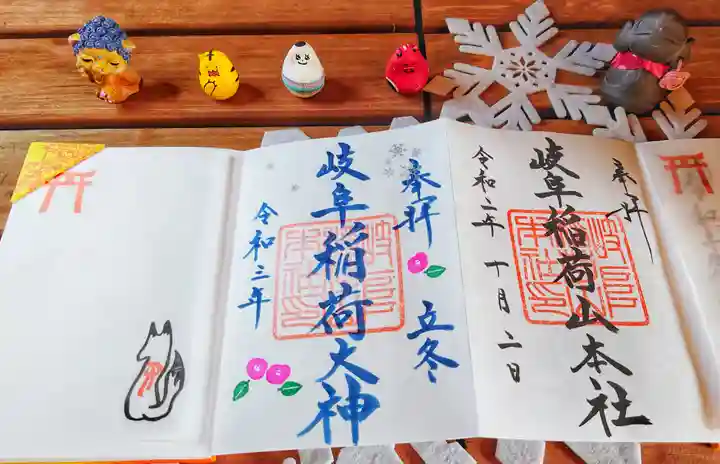 奉拝
立冬
岐阜稲荷大神
令和三年
奉拝
岐阜稲荷山本社
令和二年十月二日